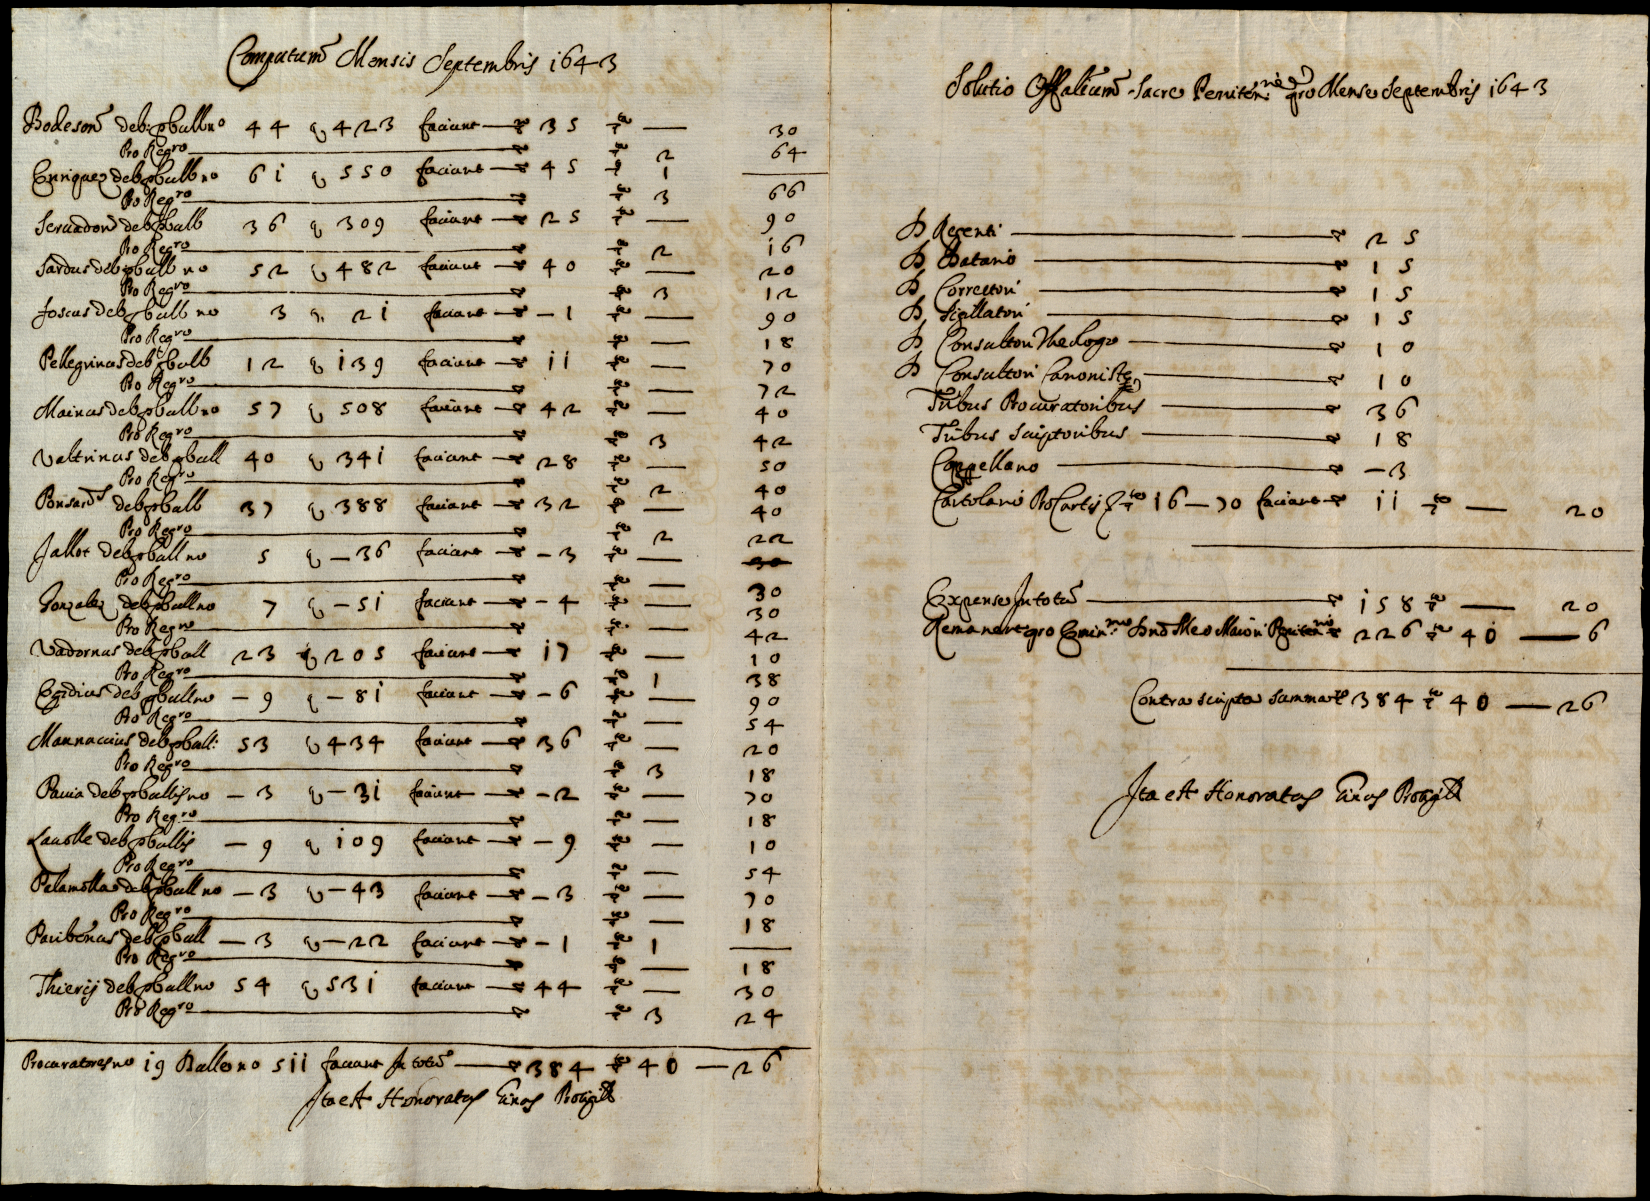 Computum Mensis Septembris 1643
Bodeson deb. p bull no 44 q 423 faciunt 35 — 30
Pro Regro 2 64
Enriquez deb p bull no 61 q 550 faciunt 45 1 —
Pro Regro 3 66
Servadon deb p bull 36 q 309 faciunt 25 — 90
Pro Regro 2 16
Sardus deb p bull no 52 q 482 faciunt 40 — 20
Pro Regro 3 12
Foscus deb p bull no 3 q 21 faciunt – 1 — 90
Pro Regro — 18
Pellegrinus deb p bull 12 q 139 faciunt 11 — 70
Pro Regro — 72
Mainus deb p bull no 57 q 508 faciunt 42 — 40
Pro Regro 3 42
Valtrinus deb p bull 40 q 341 faciunt 28 — 50
Pro Regro 2 40
Ponsard deb p bull 37 q 388 faciunt 32 — 40
Pro Regro 2 22
Jallot deb p bull no 5 q – 36 faciunt – 3 —
Pro Regro — 30
Gonzalez deb p bull no 7 q – 51 faciunt – 4 — 30
Pro Regro — 42
Vadornus deb p bull 23 q 205 faciunt 17 — 10
Pro Regro 1 38
Egidius deb p bull no – 9 q – 81 faciunt – 6 — 90
Pro Regro — 54
Mannaccius deb p bull: 53 q 434 faciunt 36 — 20
Pro Regro 3 18
Pavia deb p bullis no – 3 q – 31 faciunt – 2 — 70
Pro Regro — 18
Lavolle deb p bullis – 9 q 109 faciunt – 9 — 10
Pro Regro — 54
Palamolla deb p bull no – 3 q – 43 faciunt – 3 — 70
Pro Regro — 18
Paribenus deb p bull – 3 q – 22 faciunt – 1 1 —
Pro Regro — 18
Thierij deb p bull no 54 q 531 faciunt 44 — 30
Pro Regro 3 24
Procuratores no 19 Bulle no 511 faciunt In totu 384 40 — 26
Ita est Honoratus
Solutio Offalium Sacre Peniten. pro Mense Septembris 1643
D Regenti 25
D Datario 15
D Correctori 15
D Sigillatori 15
D Consultori Theologo 10
D Consultori Canoniste 10
Tribus Procuratoribus 36
Tribus Scriptoribus 18
Cappellano – 3
Cartolario Pro Cartis 16 – 70 faciunt 11 — 20
Expense In totu 158 — 20
Remanent pro Emin.mo Dno Meo Maiori Peniten. 226 40 — 6
Contra scripta summa 384 40 — 26
Ita est Honoratus